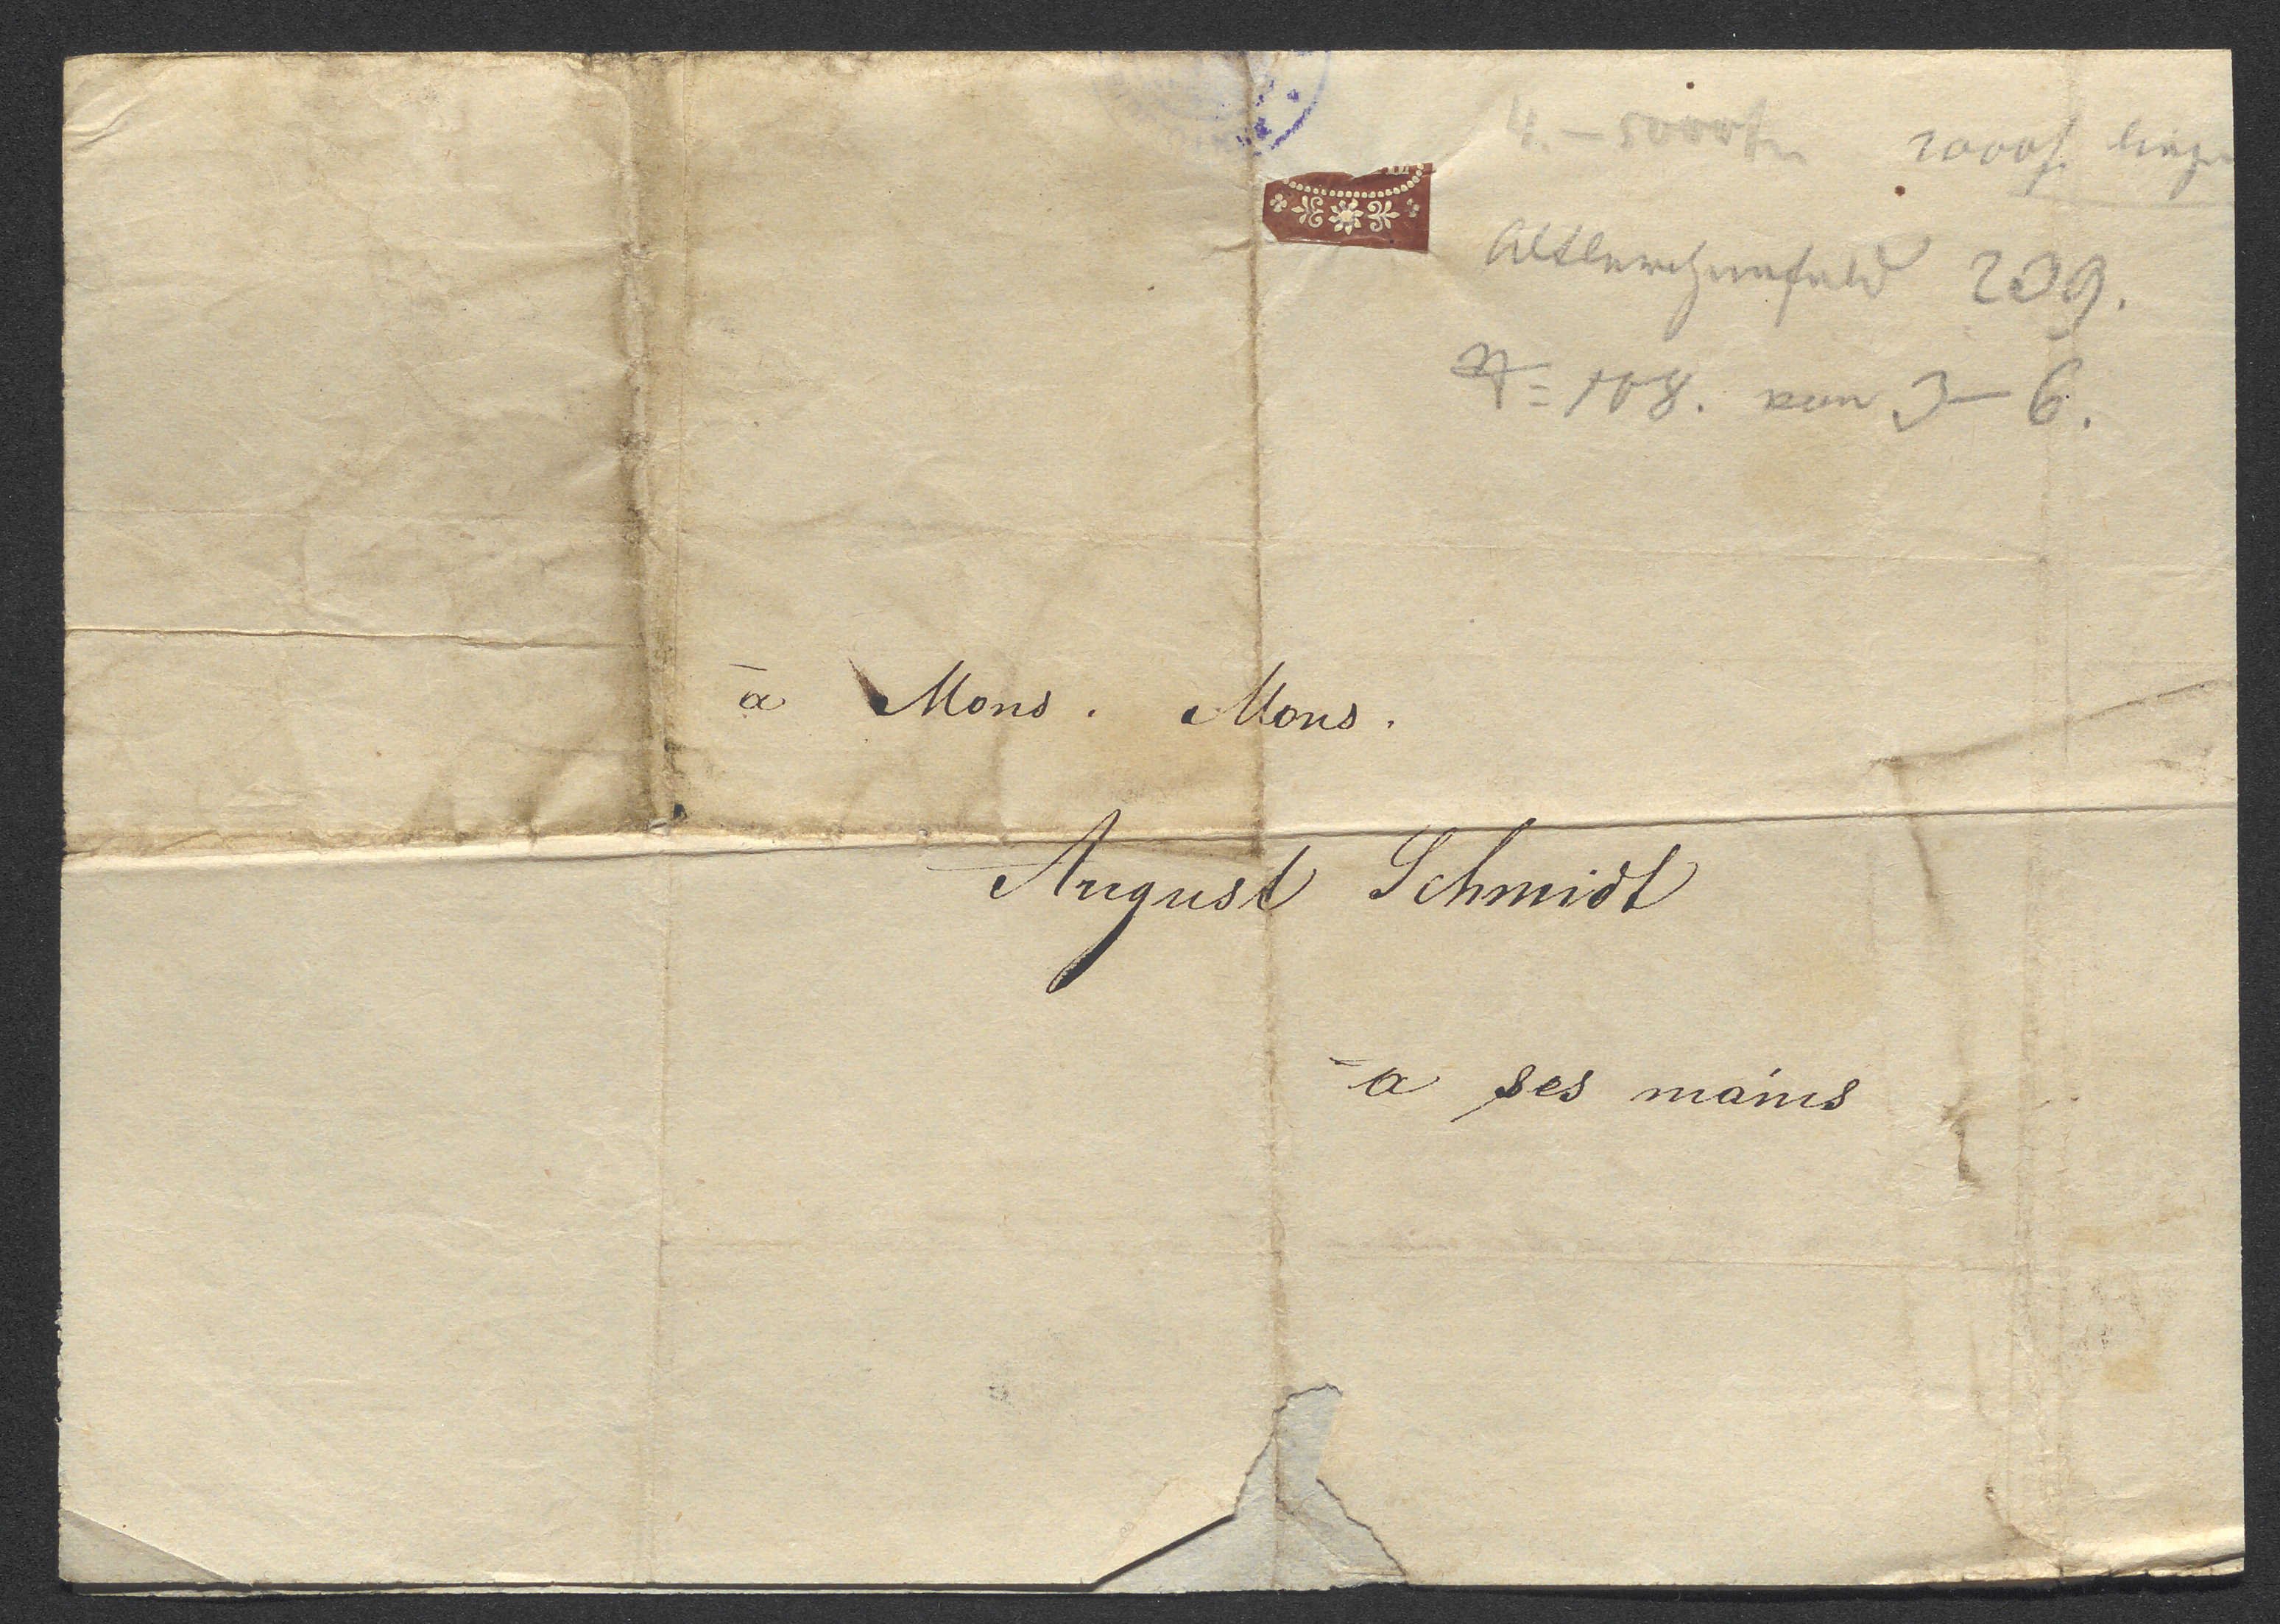 4. – 5000 f 2000 f.
Altlerchenfeld 209.
108. von 3 – 6.
à Mons. Mons.
August Schmidt
à ses mains